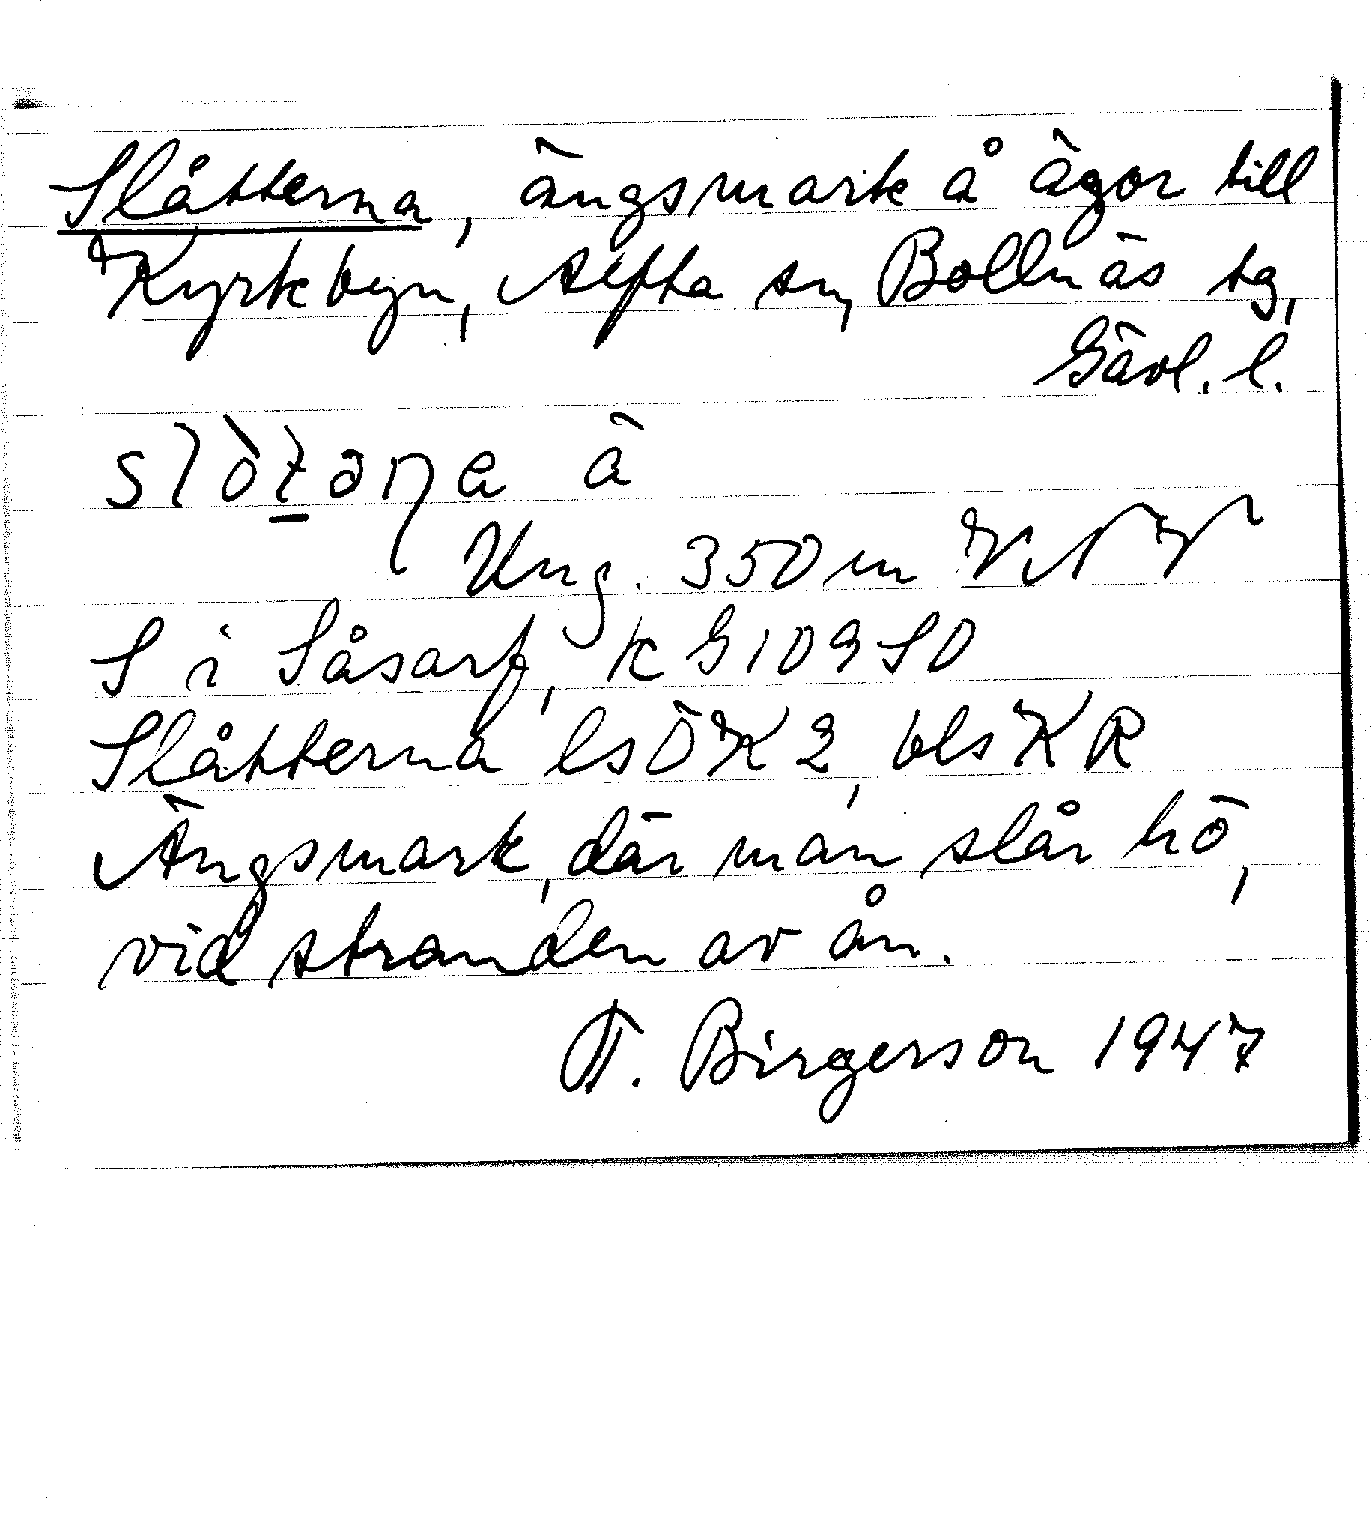 Slåtterna, ängsmark å ägor till
Kyrkbyn, Alfta sn, Bollnäs tg,
Gävl. l.
ä
Ung. 350 m VNV
S i Såsarf, k G 109 SO
Slåtterna ls ÖK 2, bls KR
Ängsmark, där man slår hö,
vid stranden av ån.
Birgerson 1947